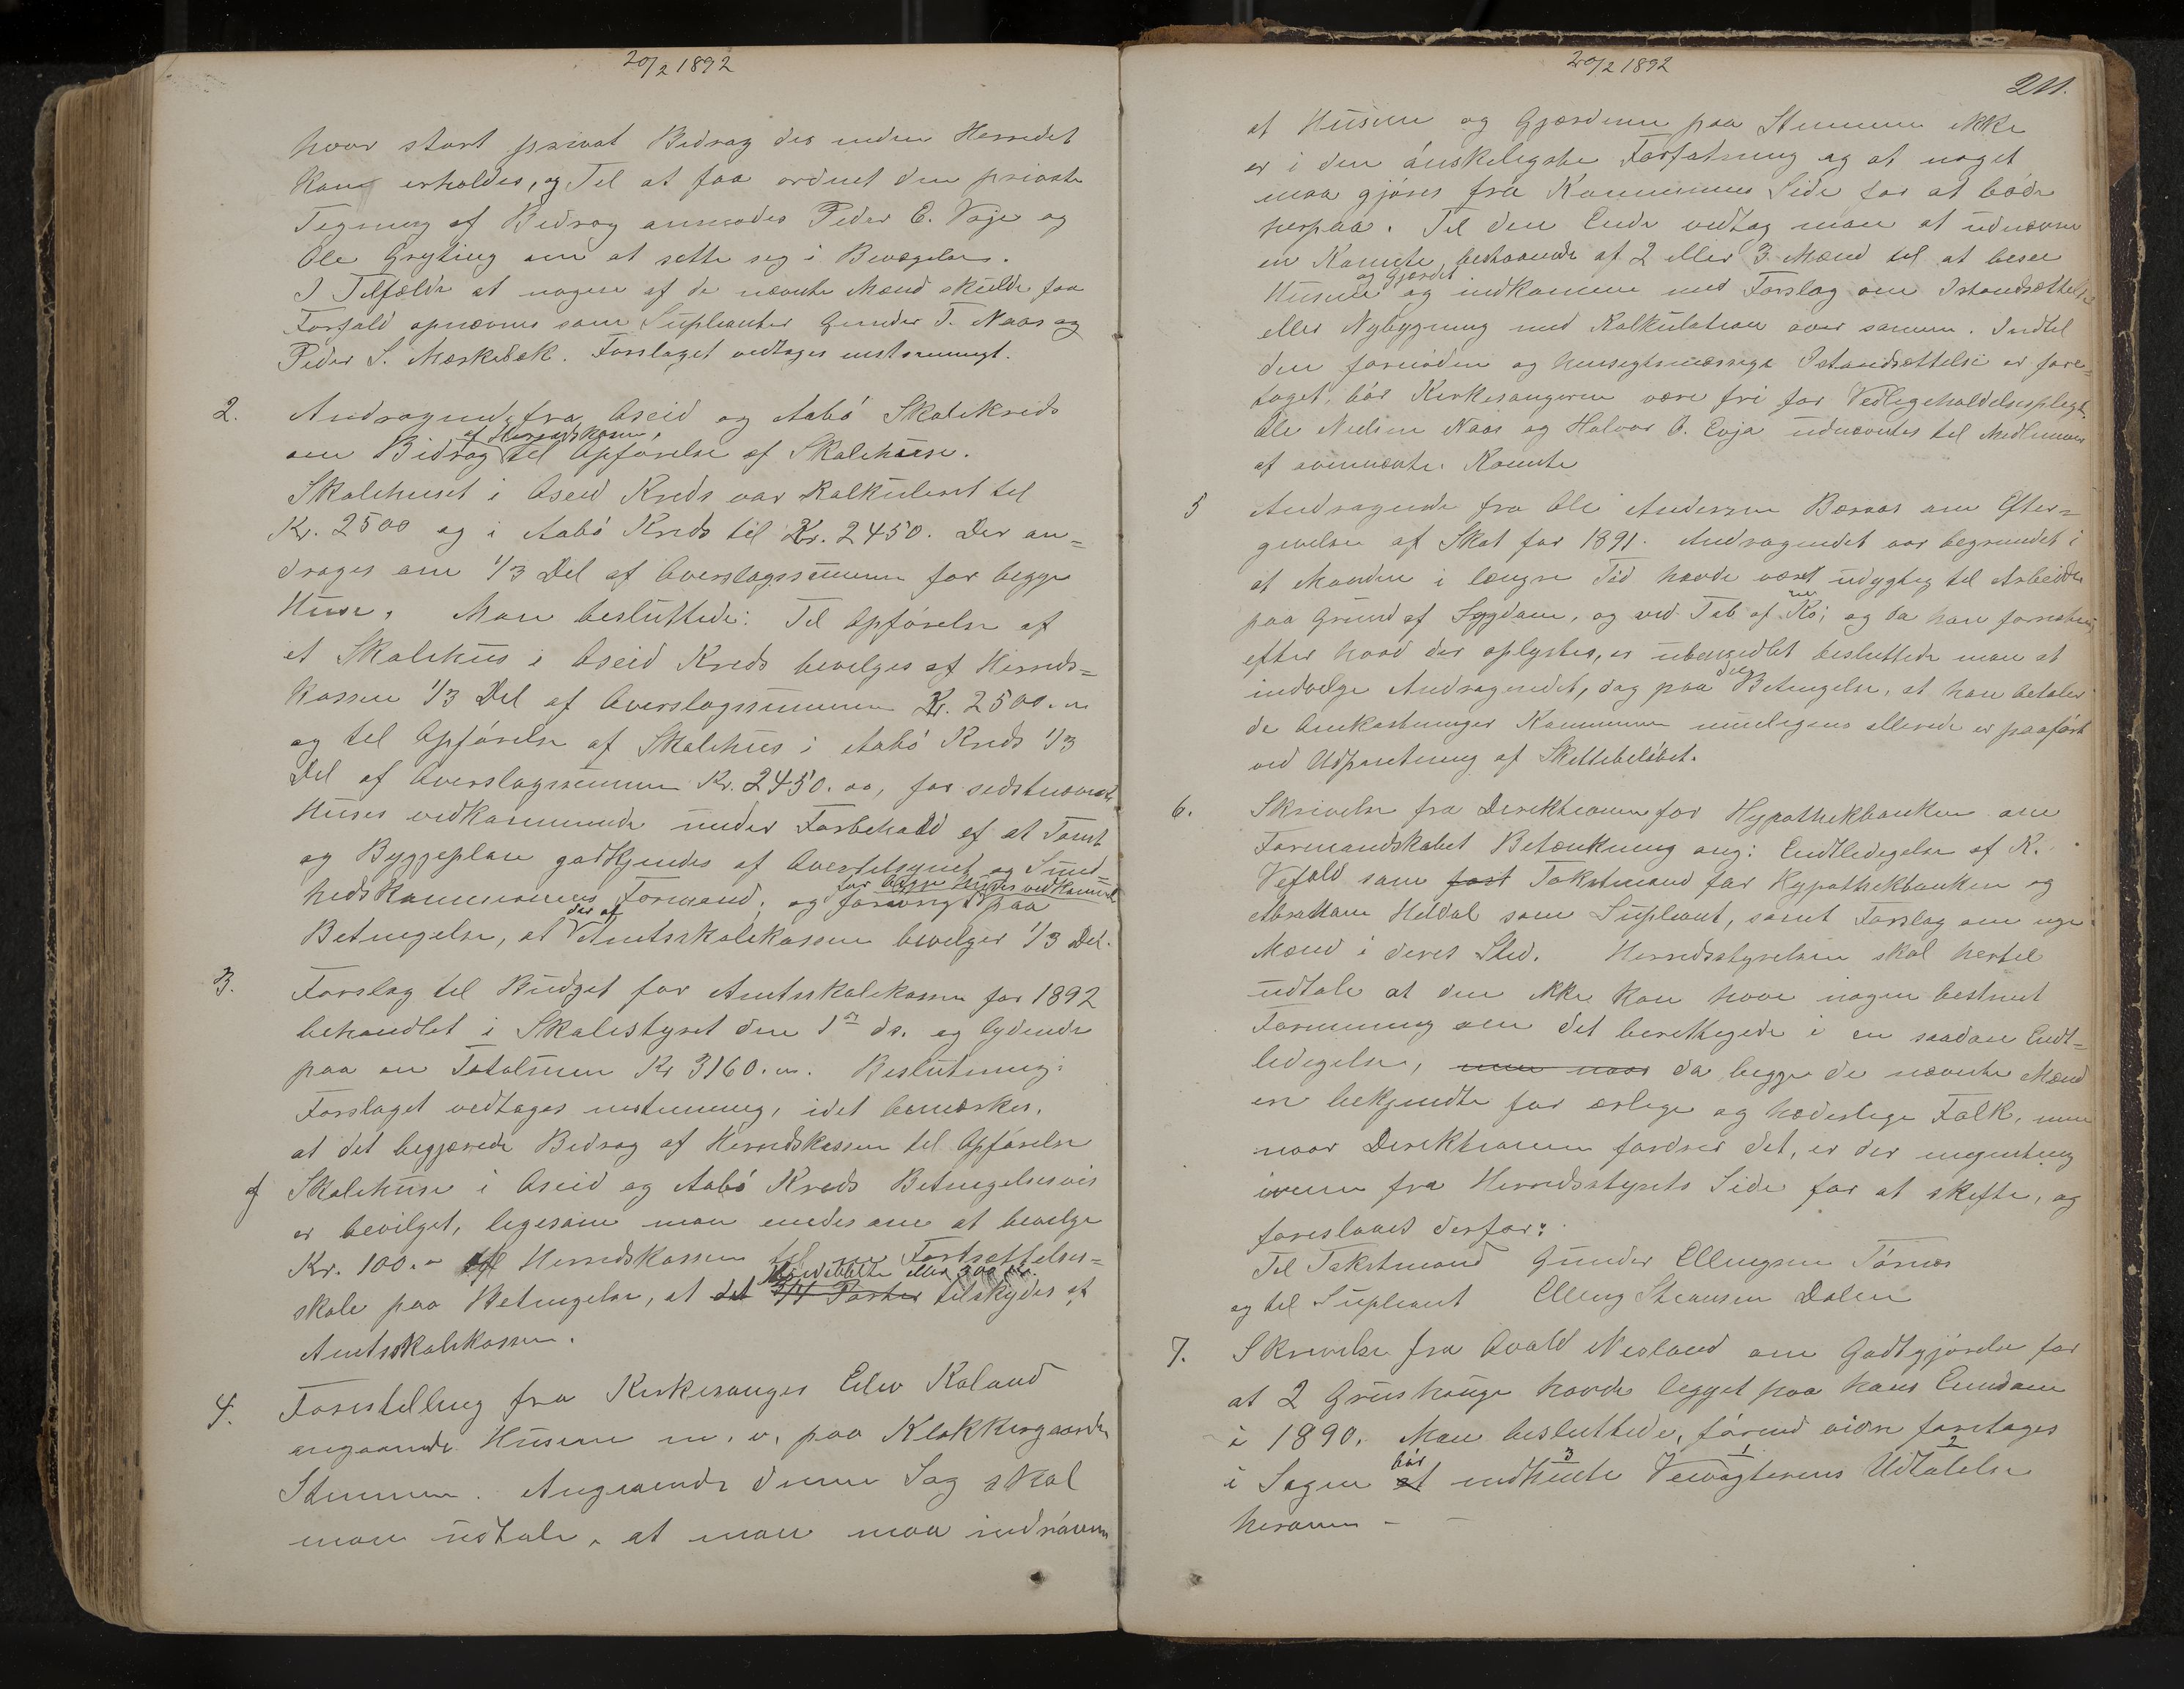 20/2 1892
hvor stort privat Bidrag der inden Herredet
kan erholdes, og Til at faa ordnet den private
Tegning af Bidrag anmodes Peder E. Vaje og
Ole Gryting om at sette sig i Bevægelse.
I Tilfælde at nogen af de nævnte Mænd skulde faa
Forfald opnævnes som Supleanter Gunder T. Naas og
Peder S. Mærkebæk. Forslaget vedtages enstemmigt.
2. Andragende fra Oseid og Aabó Skolekreds
af Herredskassen,
om Bidrag til Opførelse af Skolehuse.
Skolehuset i Oseid Kreds var kalkuleret til
Kr. 2500 og i Aabó Kreds til Kr. 2450. Der an=
drages om 1/3 Del af Overslagssummen for begge
Huse. Man besluttede: Til Opfórelse af
et Skolehus i Oseid Kreds bevilges af Herreds=
kassen 1/3 Del af Overslagssummen Kr. 2500.
og til Opfórelse af Skolehus i Aabó Kreds 1/3
Del af Overslagssummen Kr. 2450.00, for sidstnævnte
Huses vedkommende under Forbehold af at Tomt
og Byggeplan godkjendes af Overtilsynet og Sund=
for begge Huses vedkommende
hedskommissionens Formand, og forøvrigt paa
der af
Betingelse, at Amtsskolekassen bevilger 1/3 Del.
3. Forslag til Budget for Amtsskolekassen for 1892
behandlet i Skolestyret den 1ste ds. og lydende
paa en Totalsum Kr 3160. Beslutning:
Forslaget vedtages enstemmig, idet bemærkes,
at det begjærede Bidrag af Herredskassen til Opfórelse
af Skolehuse i Oseid og Aabó Kreds Betingelsesvis
er bevilget, ligesom man enedes om at bevilge
Kr. 100. af Herredskassen til en Fortsættelses=
det dobbelte eller 200 Kr.
skole paa Betingelse, at det 3/4 Parter tilskydes af
Amtsskolekassen.
4. Forestilling fra Kirkesanger Edw Kaland
angaaende Husene m. v. paa Klokkergaarden
Stemmen. Angaaende denne Sag skal
man udtale, at man maa indrømme
20/2 1892
211.
at Husene og Gjærderne paa Stemmen ikke
er i den ónskeligste Forfatning og at noget
maa gjóres fra Kommunens Side for at bóde
herpaa. Til den Ende vedtog man at udnævne
en Komite, bestaaende af 2 eller 3 Mænd til at bese
og Gjærdet
Husene og indkomme med Forslag om Istandsættelse
eller Nybygning med Kalkulation over samme. Indtil
den fornódne og hensigtsmæssige Istandsættelse er fore=
taget, bór Kirkesangeren være fri for Vedligeholdelsespligt.
Ole Nielsen Naas og Halvor O. Evja udnævntes til Medlemmer
af ovennævnte Komite
5 Andragende fra Ole Andersen Beraas om Efter=
givelse af Skat for 1891. Andragendet var begrundet i
at Manden i længre Tid havde været udygtig til Arbeide
paa Grund af Sygdom, og ved Tab af Kó; og da han forresten,
efter hvad der oplystes, er ubemidlet besluttede man at
den
indvilge Andragendet, dog paa Betingelse, at han betaler
de Omkostninger Kommunen muligens allerede er paafórt
ved Udpantning af Skattebelóbet.
6. Skrivelse fra Direktionen for Hypothekbanken om
Formandskabet Betænkning ang: Entledigelse af K.
Vefald som fast Takstmand for Hypothekbanken og
Abraham Heldal som Supleant, samt Forslag om nye
Mænd i deres Sted. Herredsstyrelsen skal hertil
udtale at den ikke kan have nogen bestemt
Formening om det berettigede i en saadan Endt=
ledigelse, men naar da begge de nævnte Mænd
er bekjendte for ærlige og hæderlige Folk, men
naar Direktionen fordrer det, er der ingenting
ivenn fra Herredsstyrets Side for at skifte, og
foreslaaes derfor:
Til Takstmand Gunder Ellingsen Tórnes
og til Supleant Elling Steansen Dalen
7. Skrivelse fra Ovald Nesland om Godtgjórelse for
at 2 Grushauge havde ligget paa hans Eiendom
i 1890. Man besluttede, fórend videre foretages
bór 3 1 2
i Sagen at indhente Veivogterens Udtalelse
herom –